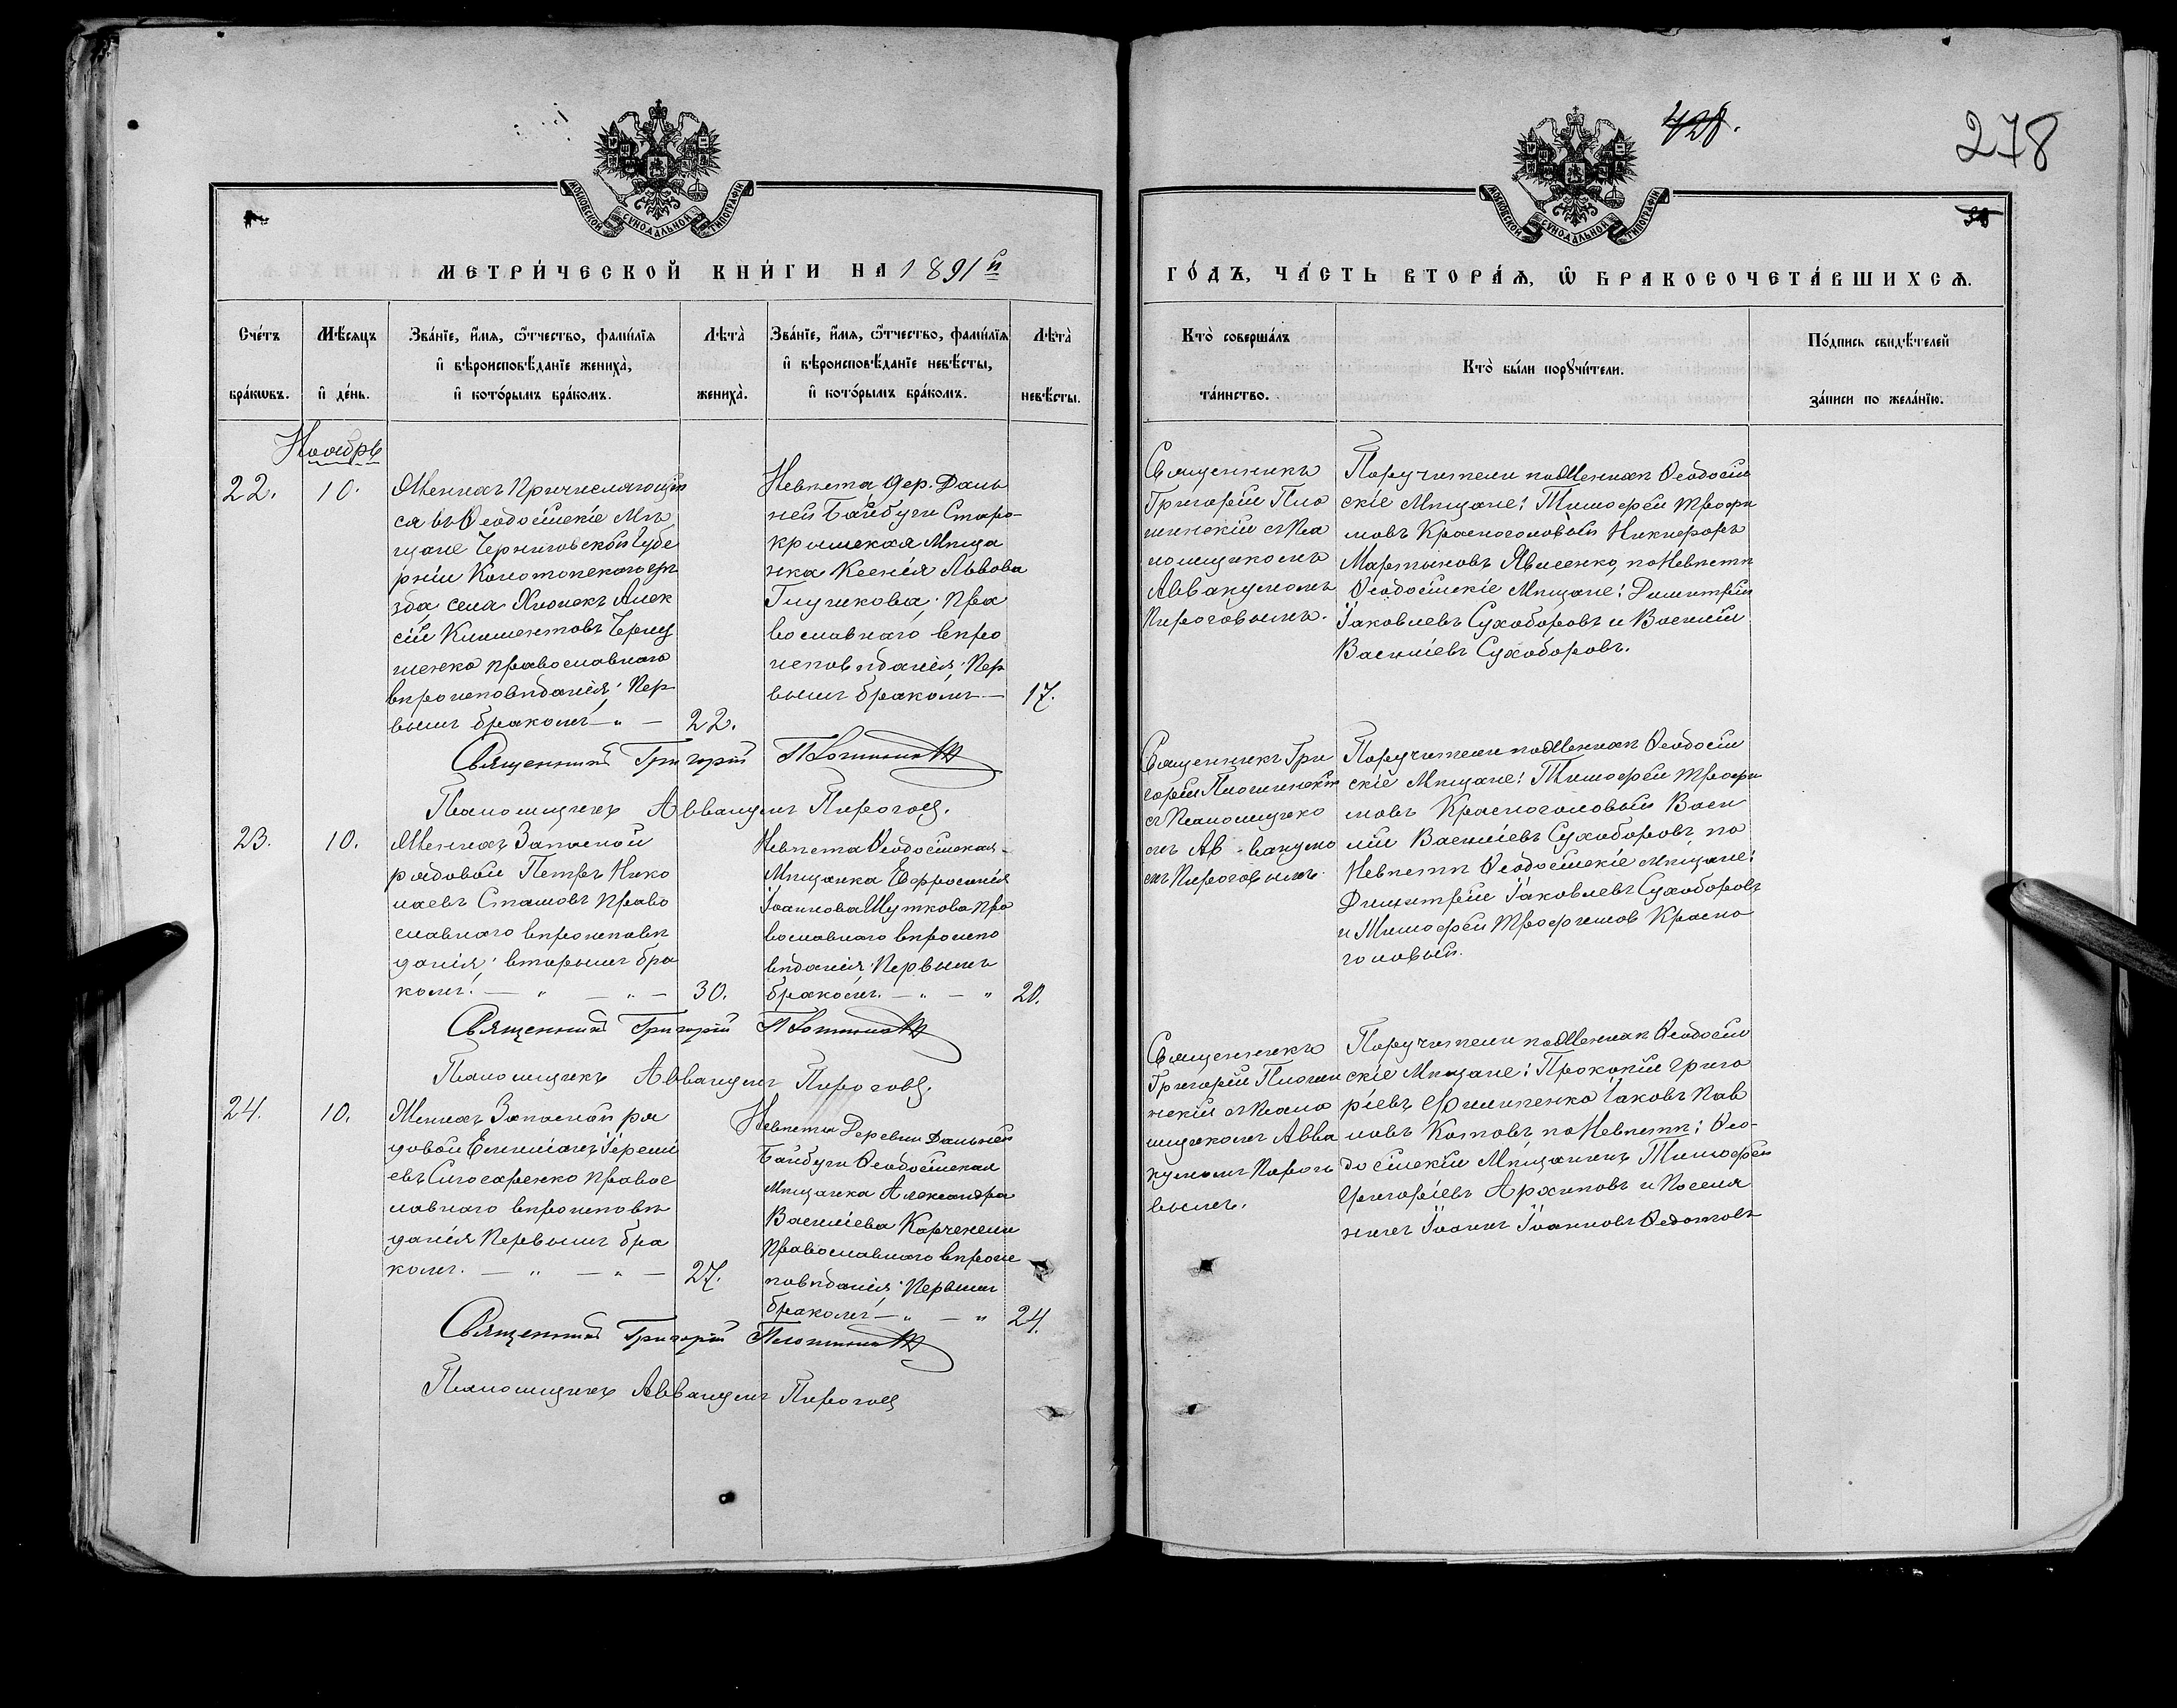 МОСКОВСКОЙ СУНОДАЛЬНОЙ ТИПОГРАФІИ
МЕТРИ́ЧЕСКОЙ КНИ́ГИ НА 1891й
Сче́тъ бра́кѡвъ.
Мѣ́сяцъ и҆ де́нь.
Зва́нїе, и҆́мя, ѻ҆́тчество, фами́лїя
и҆ вѣроисповѣ́данїе жениха̀,
и҆ кото́рымъ бра́комъ.
Лѣта̀ жениха̀.
Зва́нїе, и҆́мя, ѻ҆́тчество, фами́лїя
и҆ вѣроисповѣ́данїе невѣ́сты,
и҆ кото́рымъ бра́комъ.
Лѣта̀ невѣ́сты.
Ноябрь
22. 10.
Женихъ Причисляющій
ся въ Ѳеодосійскіе Мѣ
щане Черниговской Губе
рніи Конотопскаго уѣ
зда, села Хмонекъ Алек
сій Климентовъ Черну
шенко православнаго
вѣроисповѣданія; Пер
вымъ бракомъ — „ — 22.
Невѣста дер. Даль
ней Байбуги Старо-
крымская Мѣща
нка Ксенія Львова
Глушкова. Пра
вославнаго вѣро
исповѣданія; Пер
вымъ бракомъ — 17.
Священникъ Григорій
Псаломщикъ Аввакумъ Пироговъ.
23. 10.
Женихъ Запасной
рядовой Петръ Нико
лаевъ Стамовъ Право
славнаго вѣроисповѣ
данія; вторымъ бра
комъ. — „ — „ — 30.
Невѣста Ѳеодосійская
Мѣщанка Евфросинія
Іоаннова Шуткова Пра
вославнаго вѣроиспо
вѣданія; Первымъ
бракомъ. — „ — „ 20.
Священникъ Григорій
Псаломщикъ Аввакумъ Пироговъ.
24. 10.
Женихъ Запасной ря
довой Емиліанъ Іеремі
евъ Слюсаренко Правос
лавнаго вѣроисповѣ
данія Первымъ бра
комъ. — „ — „ — 27.
Невѣста Деревни Дальней
Байбуги Ѳеодосійская
Мѣщанка Александра
Василіева Карченкли
Православнаго вѣроис
повѣданія; Первымъ
бракомъ — „ — „ 24.
Священникъ Григорій
Псаломщикъ Аввакумъ Пироговъ
428.
278
МОСКОВСКОЙ СУНОДАЛЬНОЙ ТИПОГРАФІИ
ГО́ДЪ, ЧА́СТЬ ВТОРА́Ѧ, Ѡ҆ БРАКОСОЧЕТА́ВШИХСѦ.
Кто̀ соверша́лъ та́инство.
Кто̀ бы́ли порꙋчи́тели.
По́дпись свидѣ́телей за́писи по жела́нїю.
Священникъ
Григорій Пло
шинскій съ Пса
ломщикомъ
Аввакумомъ
Пироговымъ.
Поручители по Женихѣ Ѳеодосій
скіе Мѣщане: Тимоѳей Трофи
мовъ Красноголовый Никифоръ
Мартыновъ Явленко, по Невѣстѣ
Ѳеодосійскіе Мѣщане: Димитрій
Іаковлевъ Сухоборовъ и Василій
Василіевъ Сухоборовъ.
Священникъ Гри
горій Плошинскій
съ Псаломщико
мъ Ав-вакумо
мъ Пироговымъ.
Поручители по Женихѣ Ѳеодосій
скіе Мѣщане: Тимоѳей Трофи
мовъ Красноголовый Васи
лій Василіевъ Сухоборовъ по
Невѣстѣ Ѳеодосійскіе Мѣщане:
Димитрій Іаковлевъ Сухоборовъ
и Тимоѳей Трофимов Красно
головый.
Священникъ
Григорій Плоши
нскій съ Псало
мщикомъ Авва
кумомъ Пирого
вымъ.
Поручители по Женихѣ Ѳеодосій
скіе Мѣщане: Прокопій Григо
ріевъ Филипенко Іаковъ Пав
ловъ Котовъ по Невѣстѣ: Ѳео-
досійскій Мѣщанинъ Тимоѳей
Григоріевъ Архиповъ и Поселя
нинъ Іоаннъ Іоанновъ Ѳедотовъ